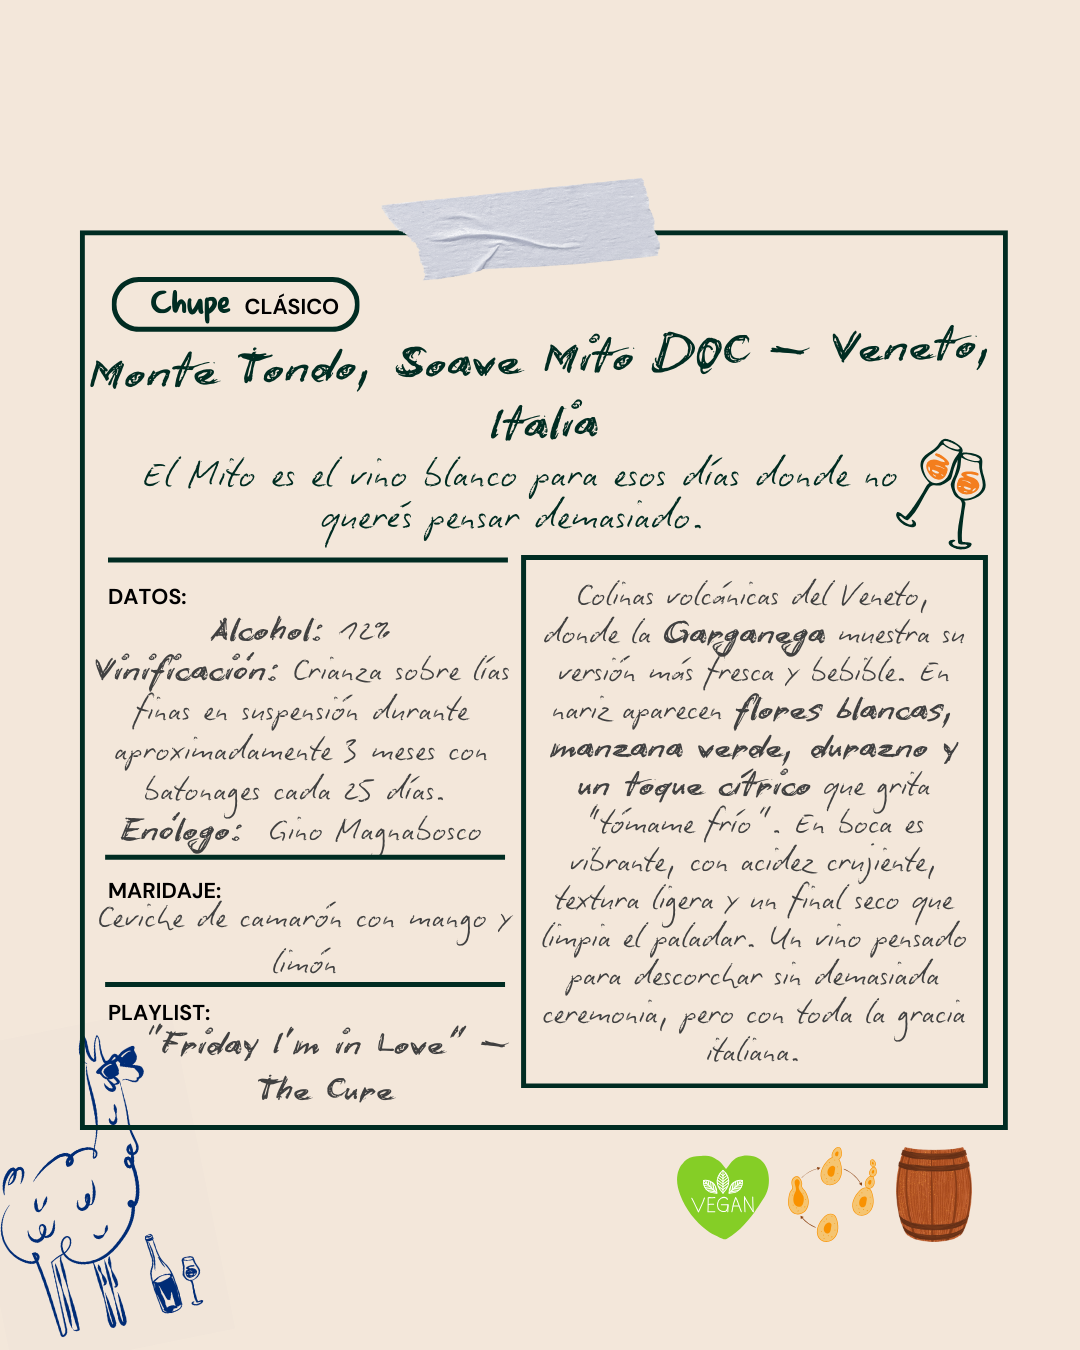 Chupe CLÁSICO
Monte Tondo, Soave Mito DOC – Veneto,
Italia
El Mito es el vino blanco para esos días donde no
querés pensar demasiado.
DATOS:
Alcohol: 12%
Vinificación: Crianza sobre lías
finas en suspensión durante
aproximadamente 3 meses con
batonages cada 25 días.
Enólogo: Gino Magnabosco
MARIDAJE:
Ceviche de camarón con mango y
limón
PLAYLIST:
"Friday I'm in Love" –
The Cure
Colinas volcánicas del Veneto,
donde la Garganega muestra su
versión más fresca y bebible. En
nariz aparecen flores blancas,
manzana verde, durazno y
un toque cítrico que grita
"tómame frío". En boca es
vibrante, con acidez crujiente,
textura ligera y un final seco que
limpia el paladar. Un vino pensado
para descorchar sin demasiada
ceremonia, pero con toda la gracia
italiana.
VEGAN